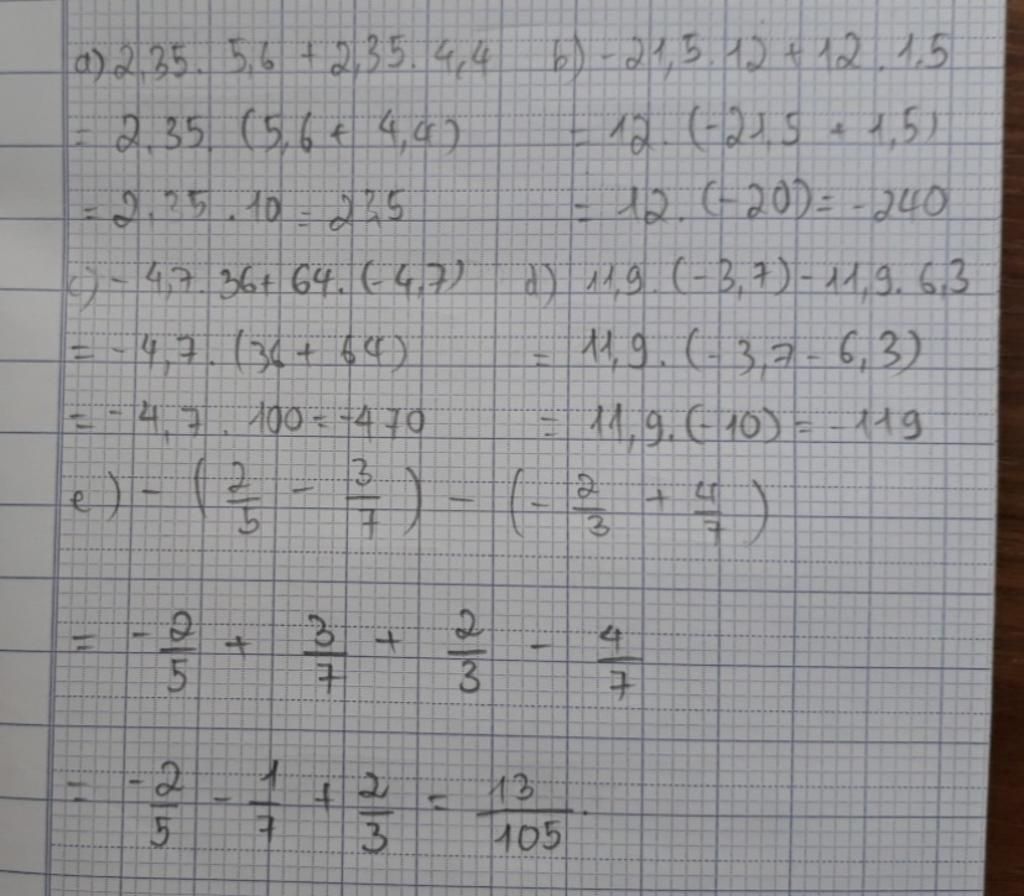 a) 2,35. 5,6 + 2,35. 4,4 b) -21,5.12 + 12 . 1,5
= 2,35. (5,6 + 4,4) = 12. (-21,5 + 1,5)
= 2,35 .10 = 23,5 = 12. (-20) = -240
c) - 4,7. 36 + 64. (-4,7) d) 11,9. (-3,7) - 11,9. 6,3
= - 4,7. (36 + 64) = 11,9. (- 3,7 - 6,3)
= - 4,7. 100 = -470 = 11,9. (-10) = -119
e) - (2/5 - 3/7) - (- 2/3 + 4/7)
= -2/5 + 3/7 + 2/3 - 4/7
= -2/5 - 1/7 + 2/3 = 13/105.